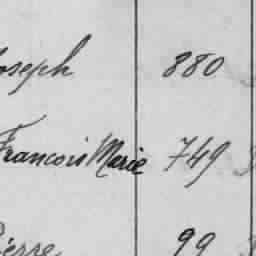 Joseph 880
Francois Marie 749
Pierre 99